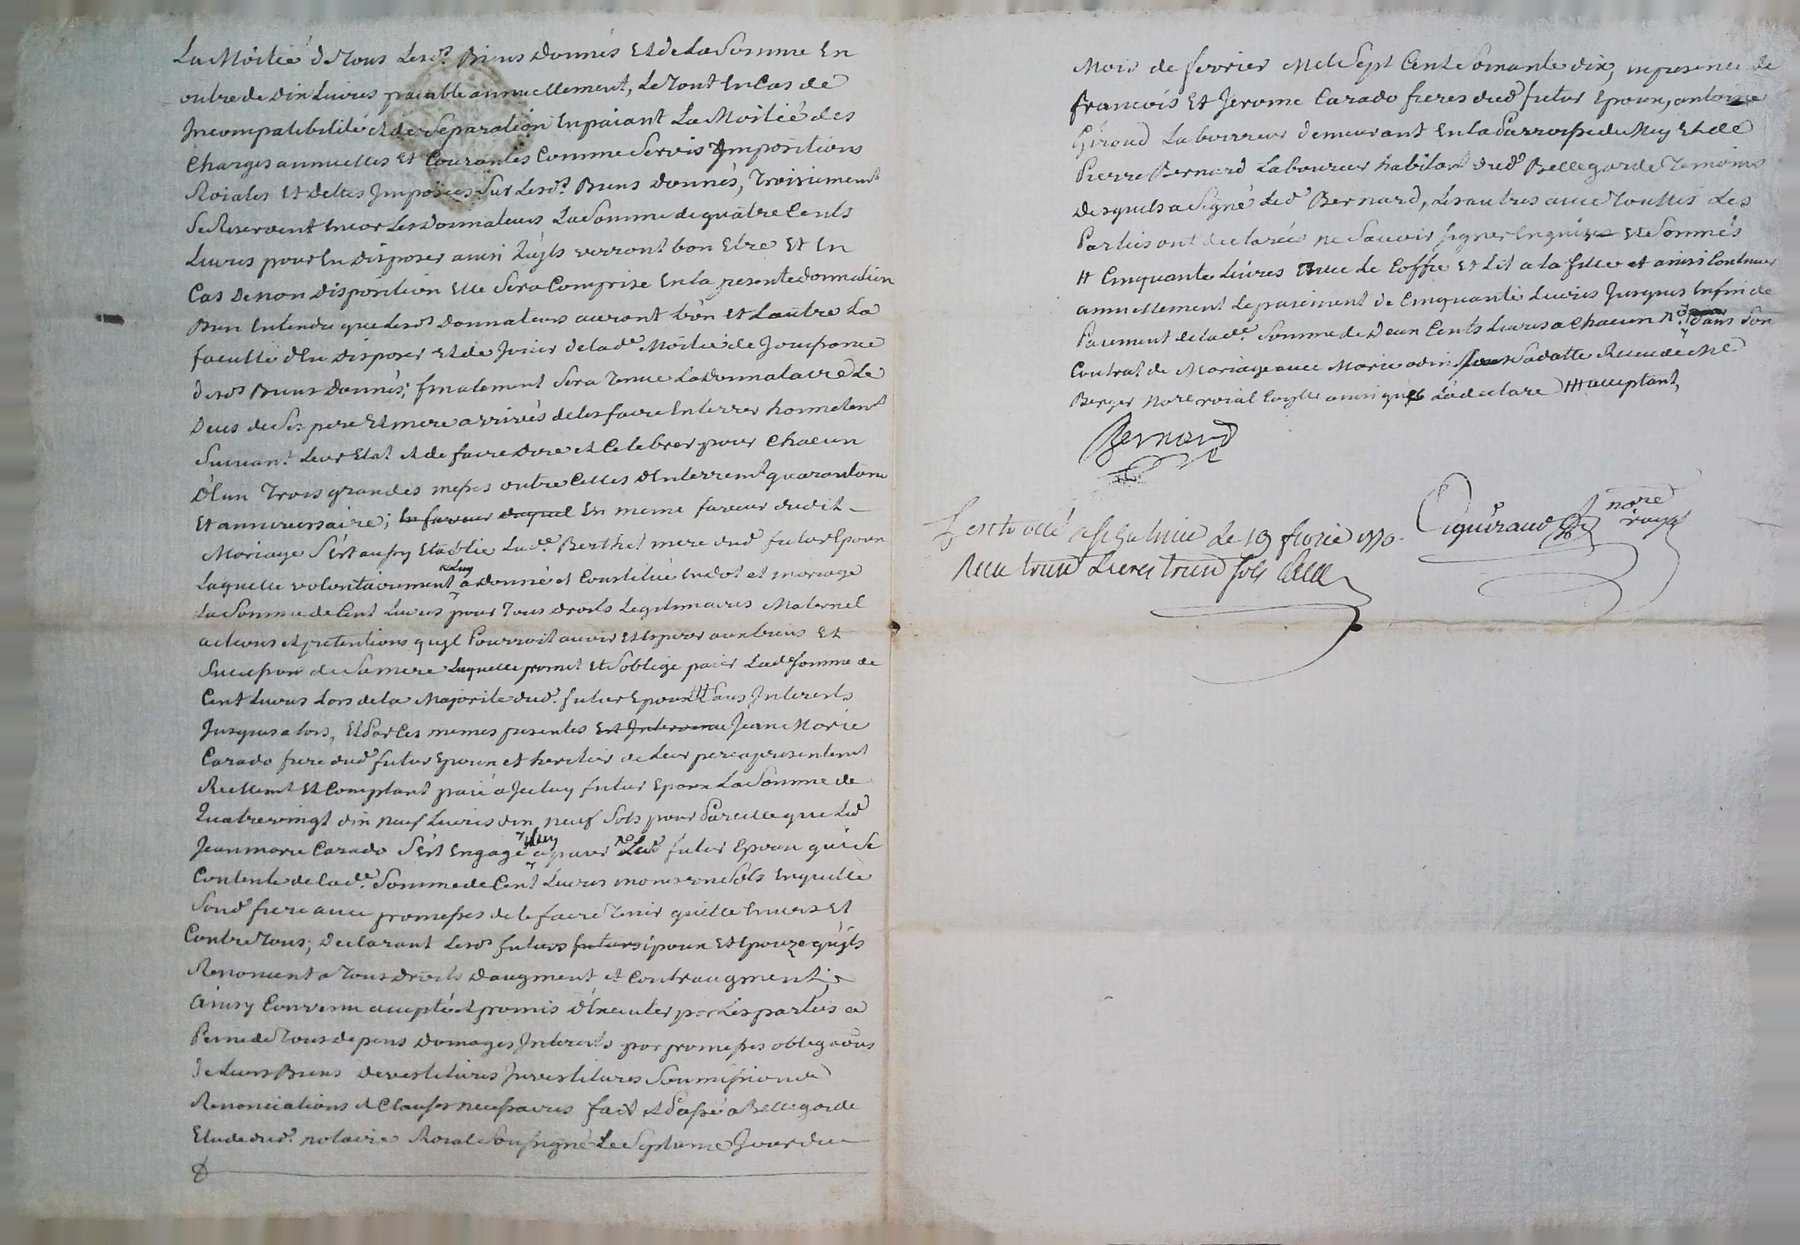 La Moitié de Tous Lesd.s Biens Donnés Et de La Somme En
outre de Dix Livres païable annuellement, Le Tout En Cas de
Incompatibilité et de Separation En païant La Moitié des
Charges annuelles Et Courantes Comme Servis Impositions
Roiales Et Dettes Imposées Sur Lesd.s Biens Donnés, Troisiement
Se Reservent Encor Les Donnateurs La Somme de quatre Cents
Livres pour En Disposer ainsi qu'ils verront bon Etre Et En
Cas De non Disposition Elle Sera Comprise En La presente donnation
Bien Entendu que Lesd.s Donnateurs auront L'un et L'autre La
faculté d'En Disposer Et de Jouir de Lad.e Moitié de Jouissance
desd.s Biens Donnés; finalement Sera Tenue La Donnataire Le
Deces de Ses pere Et mere arrivés de les faire Enterrer honnetem.t
Suivant Leur Etat et de faire Dire et Celebrer pour Chacun
D'Eux Trois grandes messes outre Celles d'Enterrem.t quarantaine
Et anniversaire; En faveur duquel En meme faveur dudit
Mariage S'est aussy Etablie Lad.e Berthet mere dud. futur Epoux
Laquelle volontairement a Donné et Constitué En dot et mariage
La Somme de Cent Livres pour Tous Droits Legitimaires Maternel
actions et pretentions qu'il Pourroit avoir Et Esperer aux biens Et
Succession de Sa mere Laquelle promet Et S'oblige païer Lad.e Somme de
Cent Livres Lors de La Majorité dud. futur Epoux H Sans Interests
Jusques a Lors, Et Par Ces memes presentes Est Intervenu Jean Marie
Carado frere dud. futur Epoux et heritier de Leur pere a presentemt
Reellemt Et Comptant païé a Jceluy futur Epoux La Somme de
Quatre vingt dix neuf Livres dix neuf Sols pour Pareille que Led.
Jean marie Carado S'est Engagé a païer Led. futur Epoux qui Se
Contente de Lad.e Somme de Cent Livres moins un Sols En quitte
Sond. frere avec promesses de le faire Tenir quitte Envers Et
Contre Tous; Declarant Lesd.s futurs futurs Epoux Et Epouze qu'ils
Renoncent a Tous Droits D'augment et Contraugment;
Ainsy Convenu accepté et promis d'Executer par Les parties a
Peine de Tous depens Domages Interets par promesses obliga.ons
de Leurs Biens Devestitures Investitures Soumissions
Renonciations et Clauses necessaires fait et Passé a Bellegarde
Etude dud. notaire Roial Soussigné Le Septieme Jour du
Mois de fevrier Mil Sept Cent Soixante dix, en presence de
francois Et Jerome Carado freres dud. futur Epoux, antoine
Giraud Laboureur demeurant En la Parroisse du Mey Et de
Pierre Bernard Laboureur habitant dud. Bellegarde Temoins
Desquels a Signé Led. Bernard, Les autres avec Touttes Les
Parties ont declarés ne Savoir signer Enquis Et Sommés
H Cinquante Livres Avec Le Coffre Et Lit a la fille et ainsi Continuer
annuellement Le paiement de Cinquante Livres Jusques En fin de
Paiement de Lad.e Somme de Deux Cents Livres a Chacun R.o dans Son
Contrat de Mariage avec Marie Sadatte Receu de M.e
Berger No.re roial ainsi qu'il L'a declaré HH acceptant,
Bernard
Centroollé a le 19 fevrie 1770.
Receu treize Livres treize sols
Giguiraud no.re royal